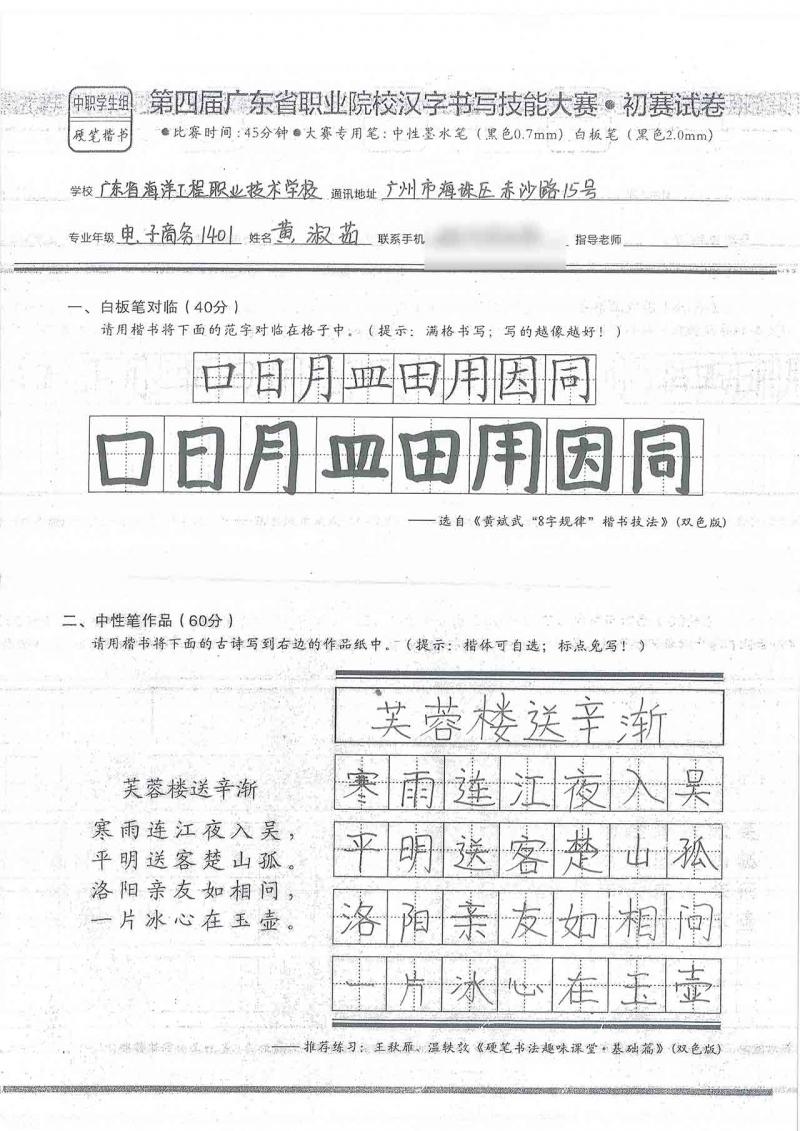 中职学生组
硬笔楷书
第四届广东省职业院校汉字书写技能大赛·初赛试卷
●比赛时间:45分钟●大赛专用笔:中性墨水笔(黑色0.7mm)白板笔(黑色2.0mm)
学校 广东省海洋工程职业技术学校 通讯地址 广州市海珠区赤沙路15号
专业年级 电子商务1401 姓名 黄淑茹 联系手机 指导老师
一、白板笔对临(40分)
请用楷书将下面的范字对临在格子中。(提示:满格书写;写的越像越好!)
口日月皿田用因同
口日月皿田用因同
——选自《黄斌武“8字规律”楷书技法》(双色版)
二、中性笔作品(60分)
请用楷书将下面的古诗写到右边的作品纸中。(提示:楷体可自选;标点免写!)
芙蓉楼送辛渐
寒雨连江夜入吴,
平明送客楚山孤。
洛阳亲友如相问,
一片冰心在玉壶。
芙蓉楼送辛渐
寒雨连江夜入吴
平明送客楚山孤
洛阳亲友如相问
一片冰心在玉壶
——推荐练习:王秋雁、温轶敦《硬笔书法趣味课堂·基础篇》(双色版)